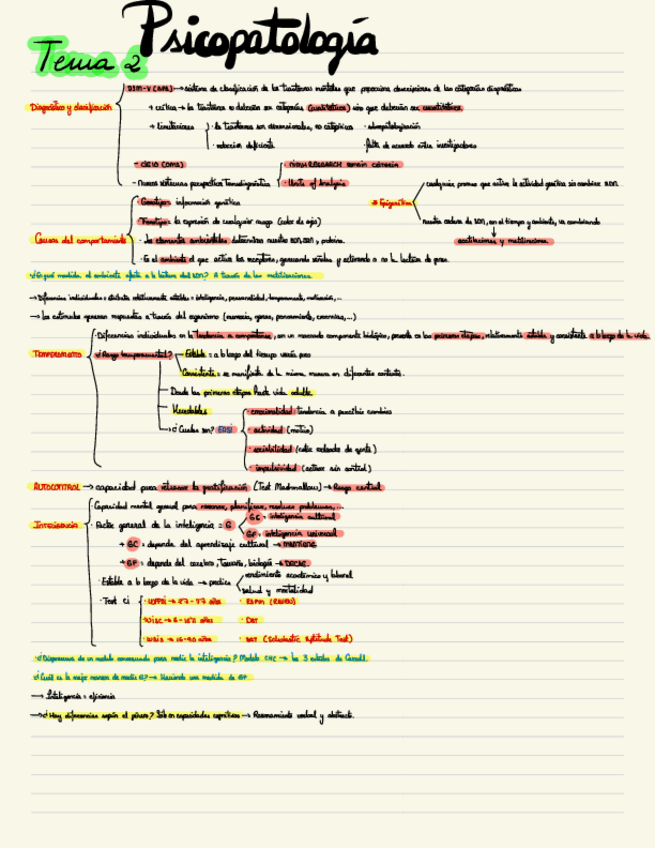 Psicopatología
Tema 2
DSM-V (APA) → sistema de clasificación de los trastornos mentales que proporciona descripciones de las categorías diagnósticas
Diagnóstico y clasificación
+ crítica → los trastornos no deberían ser categorías (cualitativas) sino que deberían ser cuantitativas.
+ limitaciones · los trastornos son dimensionales, no categóricos · sobrepatologización
· redacción deficiente · falta de acuerdo entre investigadores
- CIE10 (OMS) RESEARCH domain criteria
- Nuevos sistemas perspectiva Transdiagnóstica · Units of Analysis
cualquier proceso que active la actividad genética sin cambiar ADN
· Genotipo: información genética * Epigenética
· Fenotipo: la expresión de cualquier rasgo (color de ojos) nuestra cadena de ADN, en el tiempo y ambiente, va cambiando
Causas del comportamiento · Los elementos ambientales determinan nuestro ADN, ARN y proteína. acetilaciones y metilaciones
· Es el ambiente el que activa los receptores, generando señales y activando o no la lectura de genes.
¿En qué medida el ambiente afecta a la lectura del ADN? A través de las metilaciones.
→ Diferencias individuales = atributos relativamente estables = inteligencia, personalidad, temperamento, motivación,...
→ Los estímulos generan respuestas a través del organismo (memoria, genes, pensamiento, creencias,...)
· Diferencias individuales en la tendencia a comportarse, con un marcado componente biológico, presente en las primeras etapas, relativamente estable y consistente a lo largo de la vida.
TEMPERAMENTO ¿Rasgo temperamental? Estable = a lo largo del tiempo varía poco
Consistente = se manifiesta de la misma manera en diferentes contextos.
Desde las primeras etapas hasta vida adulta
Heredables
¿Cuáles son? EASI · emocionalidad: tendencia a percibir cambios
· actividad (motriz)
· sociabilidad (estar rodeado de gente)
· impulsividad (actuar sin control)
AUTOCONTROL → capacidad para retrasar la gratificación (Test Mashmallow) → Rasgo central
· Capacidad mental general para razonar, planificar, resolver problemas,...
INTELIGENCIA · Factor general de la inteligencia = G GC = inteligencia cultural
GF = inteligencia universal
+ GC = depende del aprendizaje cultural → MANTIENE
+ GF = depende del cerebro, tamaño, biología → DECAE
· Estable a lo largo de la vida → predice rendimiento académico y laboral
salud y mortalidad
· Test CI · WPPSI → · RSPM (RAVEN)
· WISC → 6 - · DAT
· WAIS → 16-90 años · SAT (Scholastic Aptitude Test)
¿Disponemos de un modelo consensuado para medir la inteligencia? Modelo CHC → los 3 estratos de Carroll.
¿Cuál es la mejor manera de medir G? → Haciendo una medida de GF
→ Inteligencia = eficiencia
→ ¿Hay diferencias según el género? Sólo en capacidades cognitivas → Razonamiento verbal y abstracto.